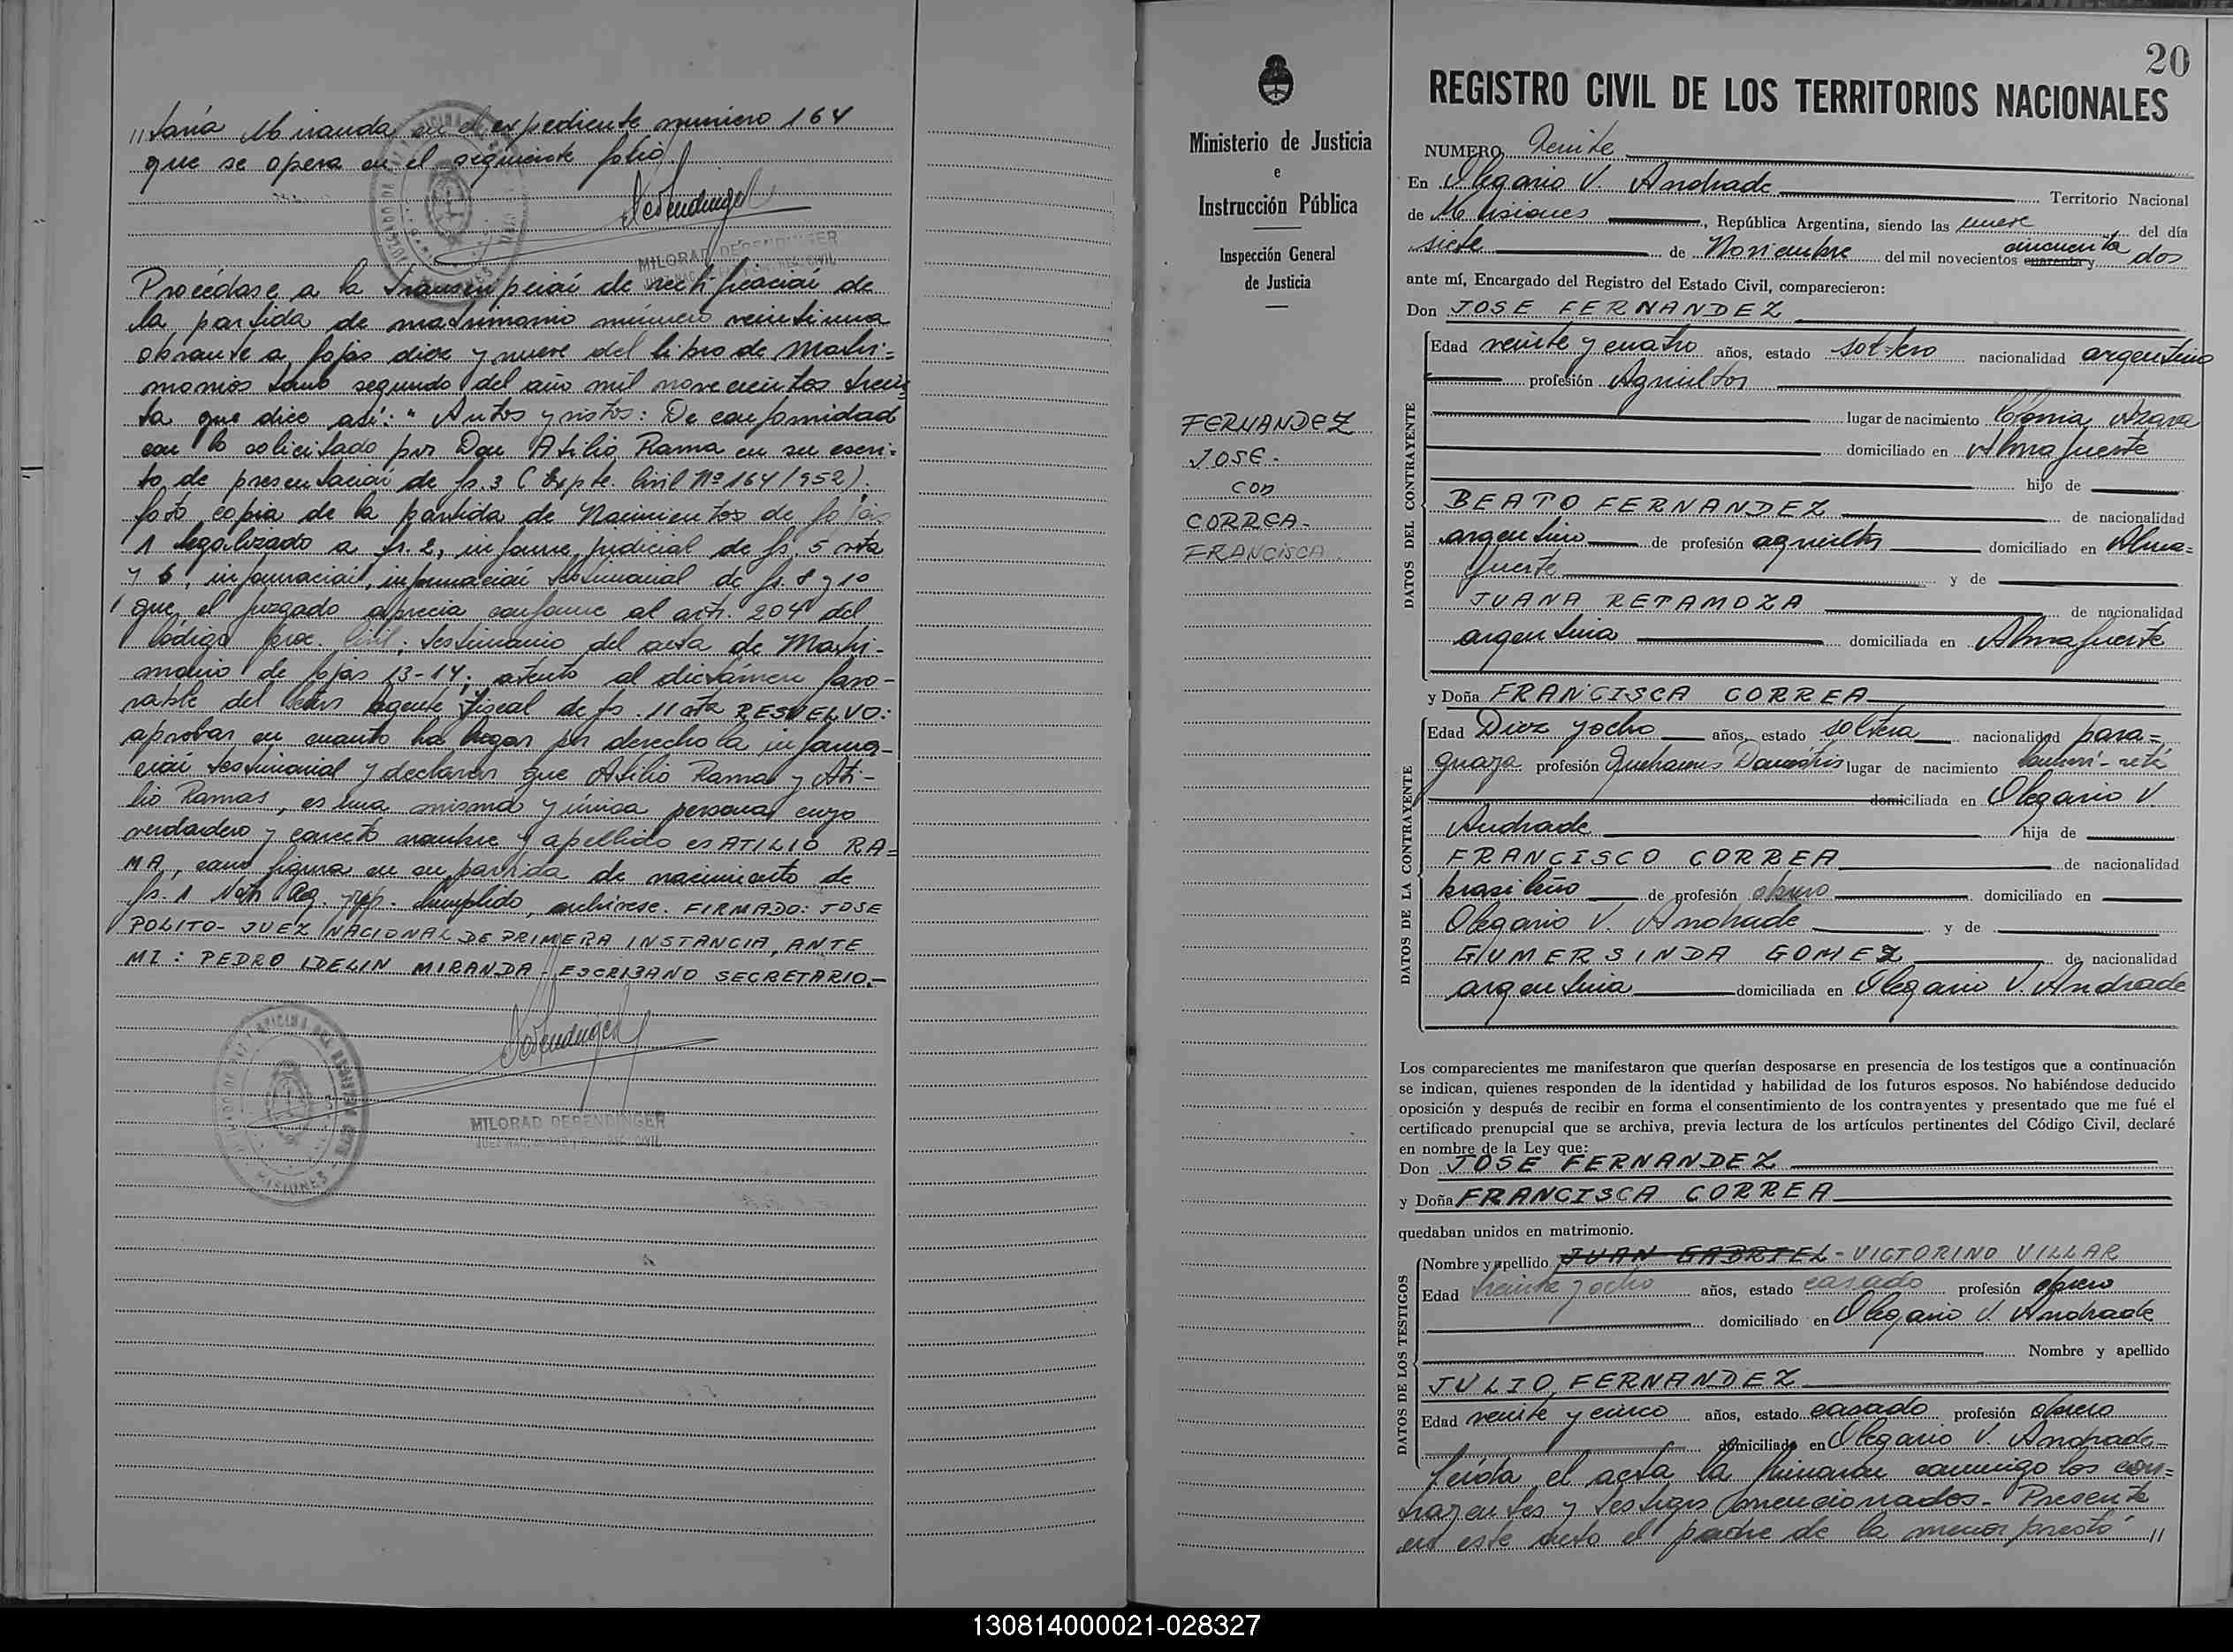 "taría Miranda en el expediente número 164
que se opera en el siguiente folio
MILORAD DERENDINGER
Procédase a la transcripción de rectificación de
la partida de matrimonio número veintiuna
obrante a fojas diez y nueve del libro de Matri=
monios tomo segundo del año mil novecientos trein
ta que dice así: " Autos y vistos: De conformidad
con lo solicitado por Don Atilio Rama en su escri=
to de presentación de fs. 3 (Expte. Civil Nº 164/952),
foto copia de la partida de Nacimientos de fojas
1 legalizado a fs. 2, informe judicial de fs. 5 vta
y 6, informaciail, información testimonial de fs. 8 y 10
que el juzgado aprecia conforme al art. 204 del
Código Proc. Civil; testimonio del acta de Matri-
monio de fojas 13-14; atento al dictámen favo-
rable del Agente Fiscal de fs. 11 vta RESUELVO:
aprobar en cuanto ha lugar por derecho la informa-
ción testimonial y declarar que Atilio Rama y Ati-
lio Ramas, es una misma y única persona cuyo
verdadero y correcto nombre y apellido es ATILIO RA=
MA, como figura en su partida de nacimiento de
fs. 1 Not. Reg. rep. Cumplido, archívese. FIRMADO: JOSE
POLITO- JUEZ NACIONAL DE PRIMERA INSTANCIA, ANTE
MI: PEDRO IDELIN MIRANDA - ESCRIBANO SECRETARIO.-
MILORAD DERENDINGER
MISIONES
Ministerio de Justicia
e
Instrucción Pública
Inspección General
de Justicia
FERNANDEZ
JOSE.
con
CORREA.
FRANCISCA.
20
REGISTRO CIVIL DE LOS TERRITORIOS NACIONALES
NUMERO Veinte
En Olegario V. Andrade Territorio Nacional
de Misiones, República Argentina, siendo las nueve del día
siete de Noviembre del mil novecientos cuarenta y cincuenta dos
ante mí, Encargado del Registro del Estado Civil, comparecieron:
Don JOSE FERNANDEZ
DATOS DEL CONTRAYENTE
Edad veinte y cuatro años, estado soltero nacionalidad argentino
profesión Agricultor
lugar de nacimiento Colonia Azara
domiciliado en Almafuerte
hijo de
BEATO FERNANDEZ de nacionalidad
argentino de profesión agricultor domiciliado en Alma=
fuerte y de
JUANA RETAMOZA de nacionalidad
argentina domiciliada en Almafuerte
y Doña FRANCISCA CORREA
DATOS DE LA CONTRAYENTE
Edad Diez y ocho años, estado soltera nacionalidad para=
guaya profesión Quehaceres Domésticos lugar de nacimiento
domiciliada en Olegario V.
Andrade hija de
FRANCISCO CORREA de nacionalidad
brasileño de profesión obrero domiciliado en
Olegario V. Andrade y de
GUMERSINDA GOMEZ de nacionalidad
argentina domiciliada en Olegario V. Andrade
Los comparecientes me manifestaron que querían desposarse en presencia de los testigos que a continuación
se indican, quienes responden de la identidad y habilidad de los futuros esposos. No habiéndose deducido
oposición y después de recibir en forma el consentimiento de los contrayentes y presentado que me fué el
certificado prenupcial que se archiva, previa lectura de los artículos pertinentes del Código Civil, declaré
en nombre de la Ley que:
Don JOSE FERNANDEZ
y Doña FRANCISCA CORREA
quedaban unidos en matrimonio.
DATOS DE LOS TESTIGOS
Nombre y apellido JUAN GABRIEL - VICTORINO VILLAR
Edad treinta y ocho años, estado casado profesión obrero
domiciliado en Olegario V. Andrade
Nombre y apellido
JULIO FERNANDEZ
Edad veinte y cinco años, estado casado profesión obrero
domiciliado en Olegario V. Andrade-
Leída el acta la firmaron conmigo los con=
trayentes y testigos mencionados.- Presente
en este acto el padre de la menor prestó "
130814000021-028327